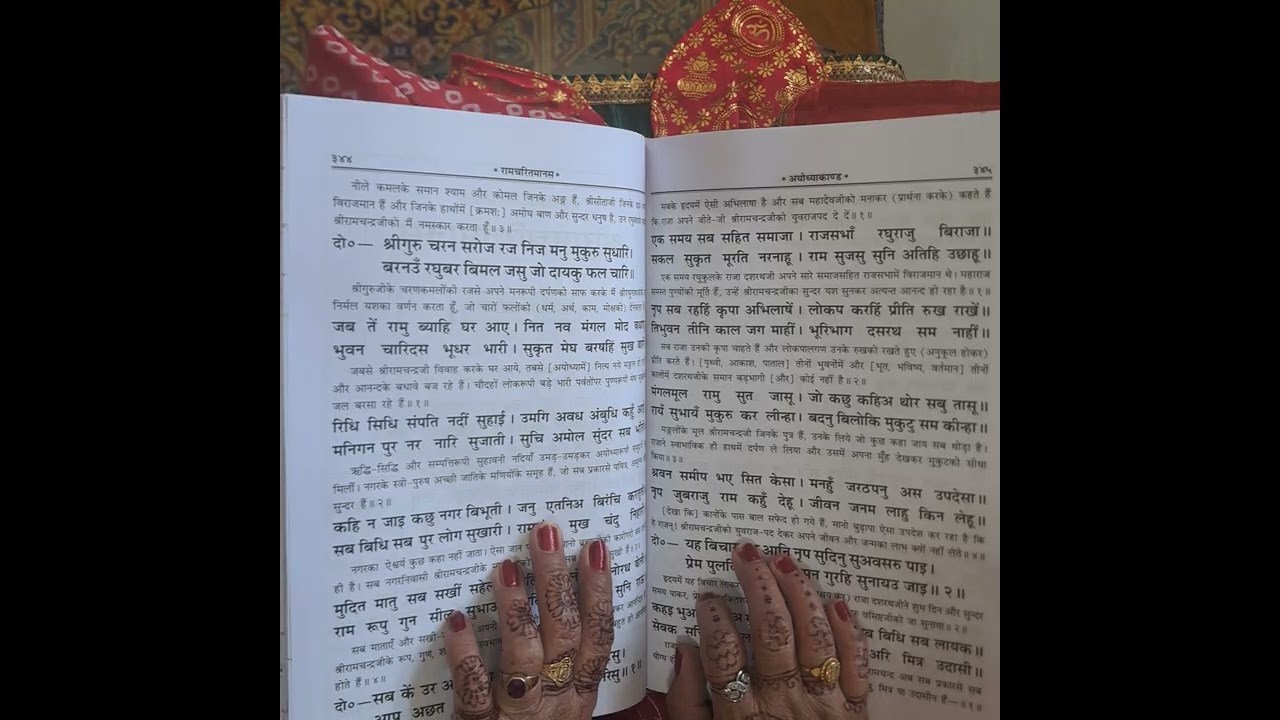 ३४४
* रामचरितमानस *
नीले कमलके समान श्याम और कोमल जिनके अङ्ग हैं, श्रीसीताजी जिनके
विराजमान हैं और जिनके हाथोंमें [क्रमशः] अमोघ बाण और सुन्दर धनुष है, उन
श्रीरामचन्द्रजीको मैं नमस्कार करता हूँ॥ ३॥
दो०— श्रीगुरु चरन सरोज रज निज मनु मुकुरु सुधारि।
बरनउँ रघुबर बिमल जसु जो दायकु फल चारि॥
श्रीगुरुजीके चरणकमलोंकी रजसे अपने मनरूपी दर्पणको साफ करके मैं
निर्मल यशका वर्णन करता हूँ, जो चारों फलोंको (धर्म, अर्थ, काम, मोक्षको)
जब तें रामु ब्याहि घर आए। नित नव मंगल मोद
भुवन चारिदस भूधर भारी। सुकृत मेघ बरषहिं सुख
जबसे श्रीरामचन्द्रजी विवाह करके घर आये, तबसे [अयोध्यामें] नित्य नये
और आनन्दके बधावे बज रहे हैं। चौदहों लोकरूपी बड़े भारी पर्वतोंपर पुण्यरूपी मेघ
जल बरसा रहे हैं॥ १॥
रिधि सिधि संपति नदीं सुहाई। उमगि अवध अंबुधि कहुँ
मनिगन पुर नर नारि सुजाती। सुचि अमोल सुंदर सब
ऋद्धि-सिद्धि और सम्पत्तिरूपी सुहावनी नदियाँ उमड़-उमड़कर अयोध्यारूपी
मिलीं। नगरके स्त्री-पुरुष अच्छी जातिके मणियोंके समूह हैं, जो सब प्रकारसे पवित्र,
सुन्दर हैं॥ २॥
कहि न जाइ कछु नगर बिभूती। जनु एतनिअ बिरंचि
सब बिधि सब पुर लोग सुखारी। मुख चंदु
नगरका ऐश्वर्य कुछ कहा नहीं जाता। ऐसा जान
ही है। सब नगरनिवासी श्रीरामचन्द्रजीके
मुदित मातु सब सखीं
राम रूपु गुन सुनि
सब माताएँ और
श्रीरामचन्द्रजीके रूप, गुण,
होते हैं॥ ४॥
दो०—सब कें उर १॥
आप अछत
* अयोध्याकाण्ड *
३४५
सबके हृदयमें ऐसी अभिलाषा है और सब महादेवजीको मनाकर (प्रार्थना करके) कहते हैं
कि राजा अपने जीते-जी श्रीरामचन्द्रजीको युवराजपद दे दें॥ १॥
एक समय सब सहित समाजा। राजसभाँ रघुराजु बिराजा॥
सकल सुकृत मूरति नरनाहू। राम सुजसु सुनि अतिहि उछाहू॥
एक समय रघुकुलके राजा दशरथजी अपने सारे समाजसहित राजसभामें विराजमान थे। महाराज
समस्त पुण्योंकी मूर्ति हैं, उन्हें श्रीरामचन्द्रजीका सुन्दर यश सुनकर अत्यन्त आनन्द हो रहा है॥ १॥
नृप सब रहहिं कृपा अभिलाषें। लोकप करहिं प्रीति रुख राखें॥
तिभुवन तीनि काल जग माहीं। भूरिभाग दसरथ सम नाहीं॥
सब राजा उनकी कृपा चाहते हैं और लोकपालगण उनके रुखको रखते हुए (अनुकूल होकर)
प्रीति करते हैं। [पृथ्वी, आकाश, पाताल] तीनों भुवनोंमें और [भूत, भविष्य, वर्तमान] तीनों
कालोंमें दशरथजीके समान बड़भागी [और] कोई नहीं है॥ २॥
मंगलमूल रामु सुत जासू। जो कछु कहिअ थोर सबु तासू॥
रायँ सुभायँ मुकुरु कर लीन्हा। बदनु बिलोकि मुकुटु सम कीन्हा॥
मङ्गलोंके मूल श्रीरामचन्द्रजी जिनके पुत्र हैं, उनके लिये जो कुछ कहा जाय सब थोड़ा है।
राजाने स्वाभाविक ही हाथमें दर्पण ले लिया और उसमें अपना मुँह देखकर मुकुटको सीधा
किया॥ ३॥
श्रवन समीप भए सित केसा। मनहुँ जरठपनु अस उपदेसा॥
नृप जुबराजु राम कहुँ देहू। जीवन जनम लाहु किन लेहू॥
[देखा कि] कानोंके पास बाल सफेद हो गये हैं, मानो बुढ़ापा ऐसा उपदेश कर रहा है कि
हे राजन्! श्रीरामचन्द्रजीको युवराज-पद देकर अपने जीवन और जन्मका लाभ क्यों नहीं लेते॥ ४॥
दो०— यह आनि नृप सुदिनु सुअवसरु पाइ।
प्रेम गुरहि सुनायउ जाइ॥ २॥
हृदयमें यह विचार राजा दशरथजीने शुभ दिन और सुन्दर
समय पाकर, वसिष्ठजीको जा सुनाया॥ २॥
कहइ बिधि सब लायक॥
सेवक अरि मित्र उदासी॥
अब सब प्रकारसे सब
योग्य मित्र या उदासीन हैं—॥ १॥